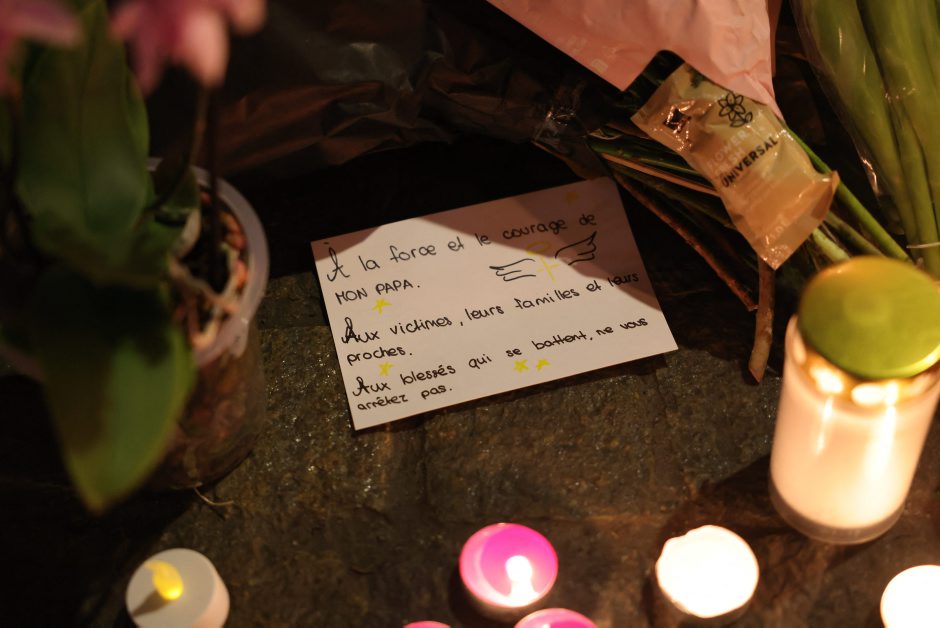 À la force et le courage de
MON PAPA.
Aux victimes, leurs familles et leurs
proches.
Aux blessés qui se battent, ne vous
arrêtez pas.
UNIVERSAL